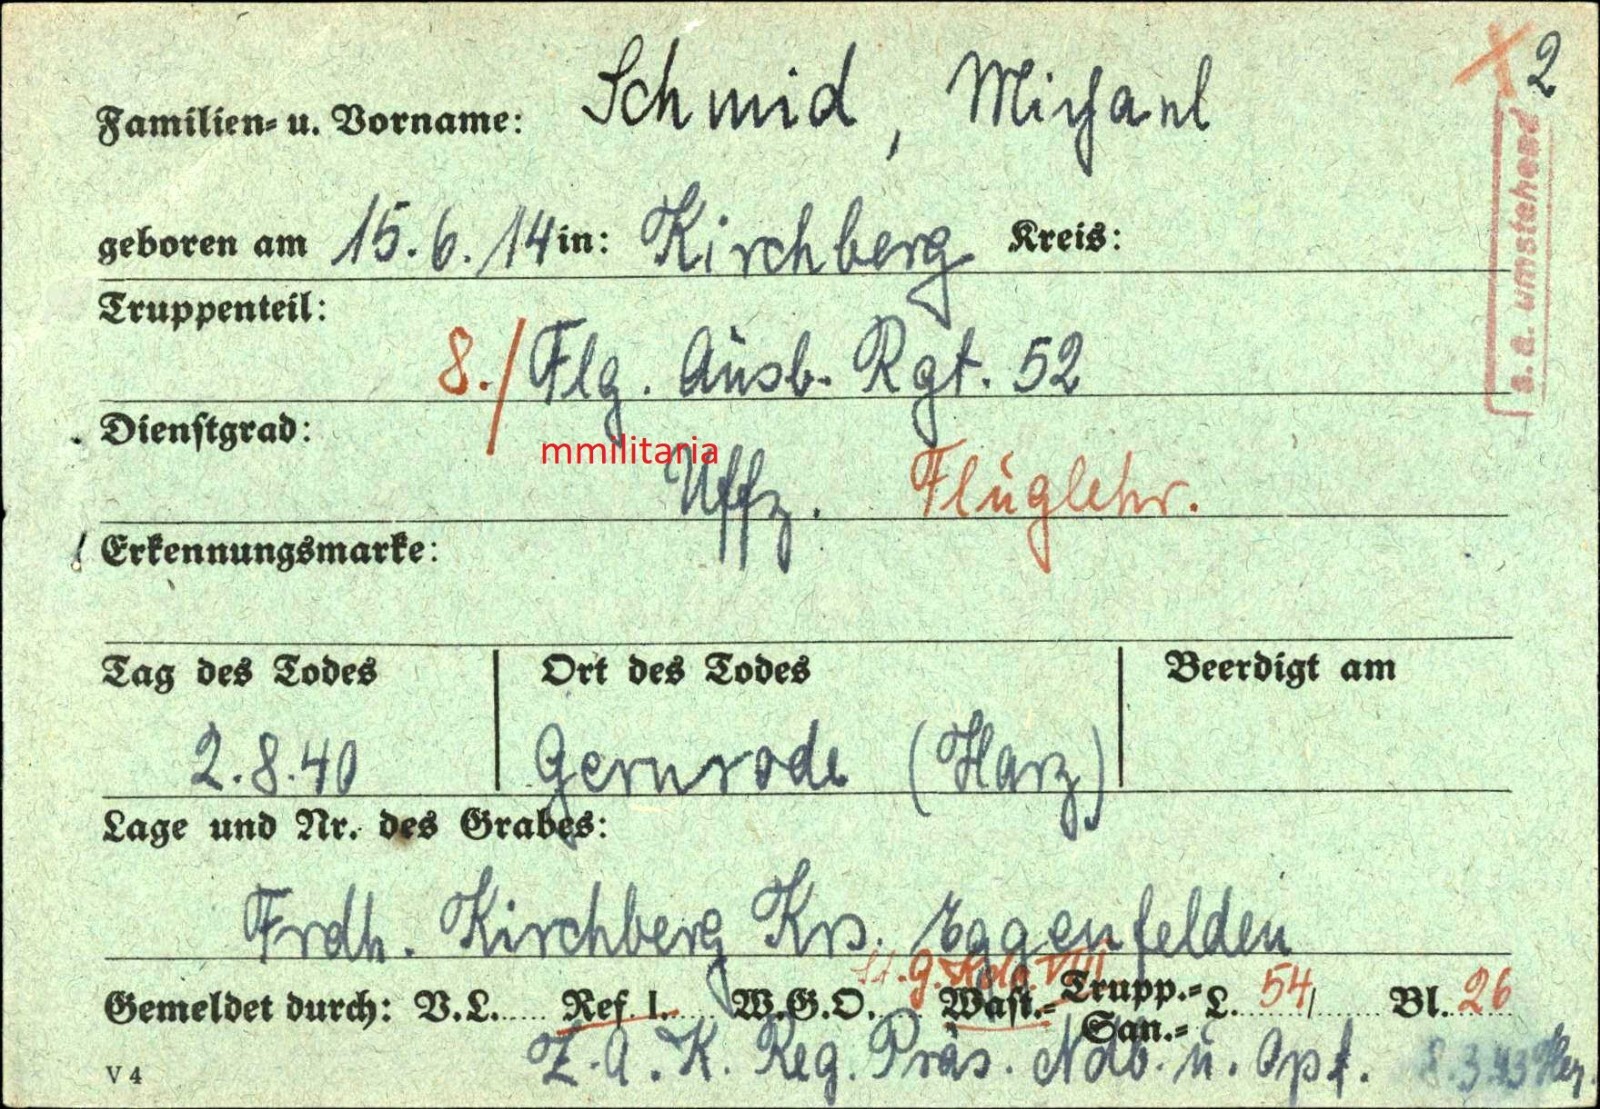 2
Familien- u. Vorname: Schmid, Michael
s. a. umstehend
geboren am 15.6.14 in: Kirchberg Kreis:
Truppenteil:
8./ Flg. Ausb. Rgt. 52
Dienstgrad:
mmilitaria
Uffz. Fluglehr.
Erkennungsmarke:
Tag des Todes Ort des Todes Beerdigt am
2.8.40 Gernrode (Harz)
Lage und Nr. des Grabes:
Frdh. Kirchberg Krs. Eggenfelden
VIII
Gemeldet durch: V.L..... Ref. I..... W.G.O..... Wast.- Trupp.- San.- L. 54/ Bl. 26
Z.A.K. Reg. Präs. Ndb. u. Opf. 8.3.43
V 4